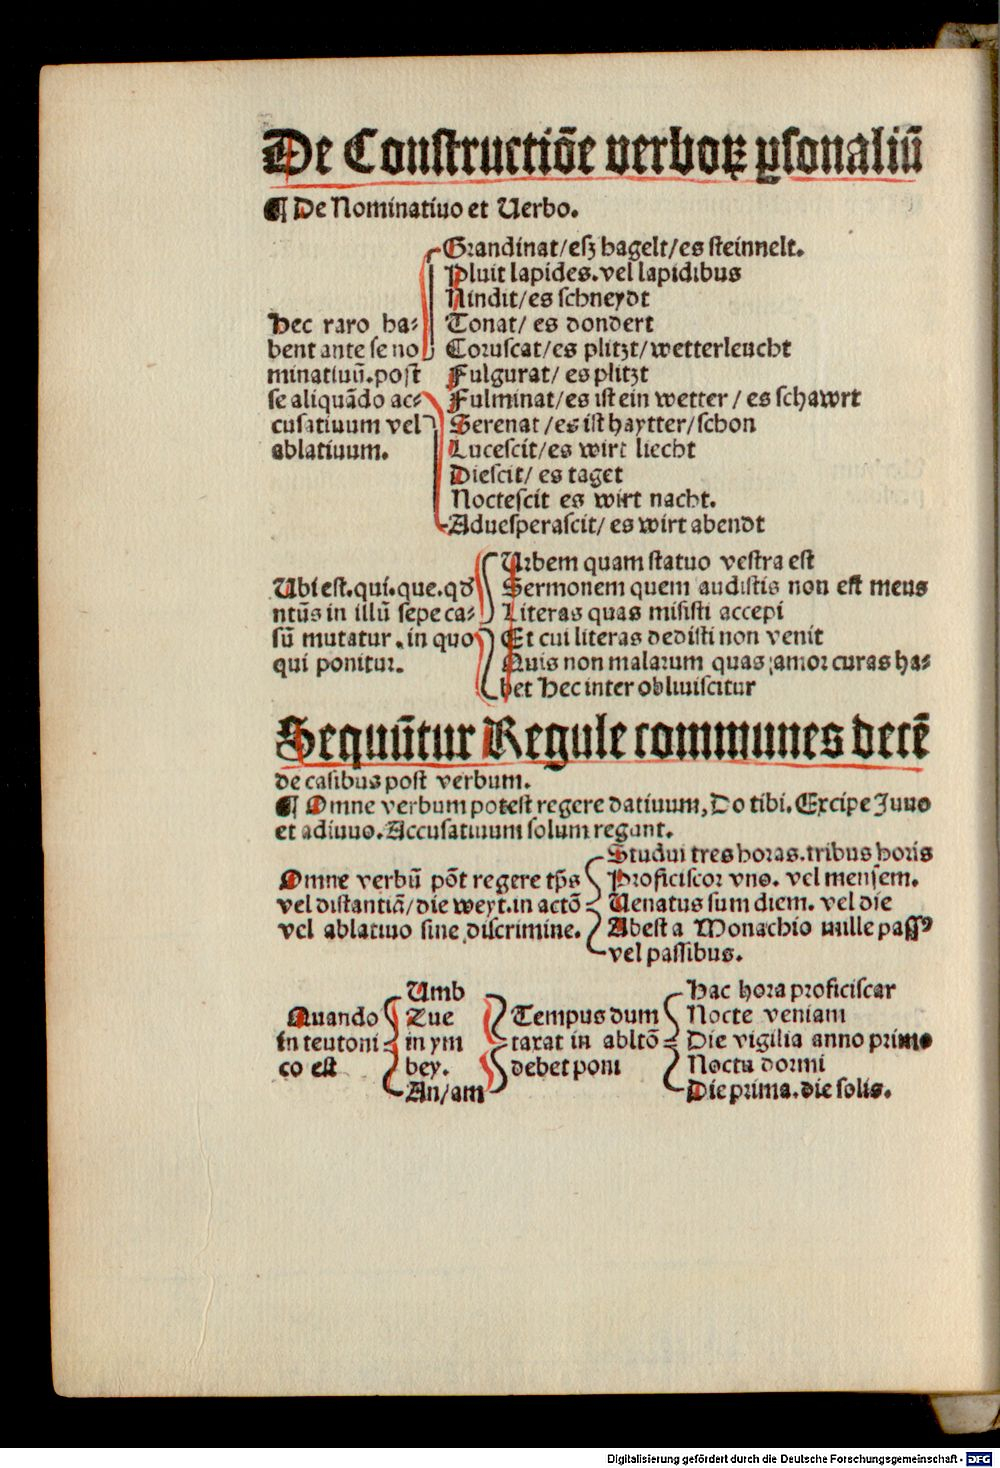 De Constructiōe verboꝝ ꝑsonaliū
¶ De Nominatiuo et Uerbo.
Hec raro ha⸗
bent ante se no
minatiuū. post
se aliquādo ac⸗
cusatiuum vel
ablatiuum.
Grandinat/esz hagelt/es steinnelt.
Pluit lapides. vel lapidibus
Nindit/es schneydt
Tonat/ es dondert
Coruscat/es plitzt/wetterleucht
Fulgurat/ es plitzt
Fulminat/es ist ein wetter / es schawrt
Serenat /es ist haytter/schon
Lucescit/es wirt liecht
Diescit/ es taget
Noctescit es wirt nacht.
Aduesperascit/ es wirt abendt
Ubi est. qui. que. qd̄
ntūs in illū sepe ca⸗
sū mutatur. in quo
qui ponitur.
Urbem quam statuo vestra est
Sermonem quem audistis non est meus
Literas quas misisti accepi
Et cui literas dedisti non venit
Quis non malarum quas amor curas ha⸗
bet Hec inter obliuiscitur
Sequūtur Regule communes decē
de casibus post verbum.
¶ Omne verbum potest regere datiuum, Do tibi. Excipe Juuo
et adiuuo. Accusatiuum solum regunt.
Omne verbū pōt regere tp̄s
vel distantiā/die weyt. in actō
vel ablatiuo sine discrimine.
Studui tres horas. tribus horis
Proficiscor vno. vel mensem.
Uenatus sum diem. vel die
Abest a Monachio mille passꝰ
vel passibus.
Quando
in teutoni
co est
Umb
Zue
in ym
bey.
An/am
Tempus dum
taxat in abltō
debet poni
Hac hora proficiscar
Nocte veniam
Die vigilia anno primo
Noctu dormi
Die prima. die solis.
Digitalisierung gefördert durch die Deutsche Forschungsgemeinschaft - DFG